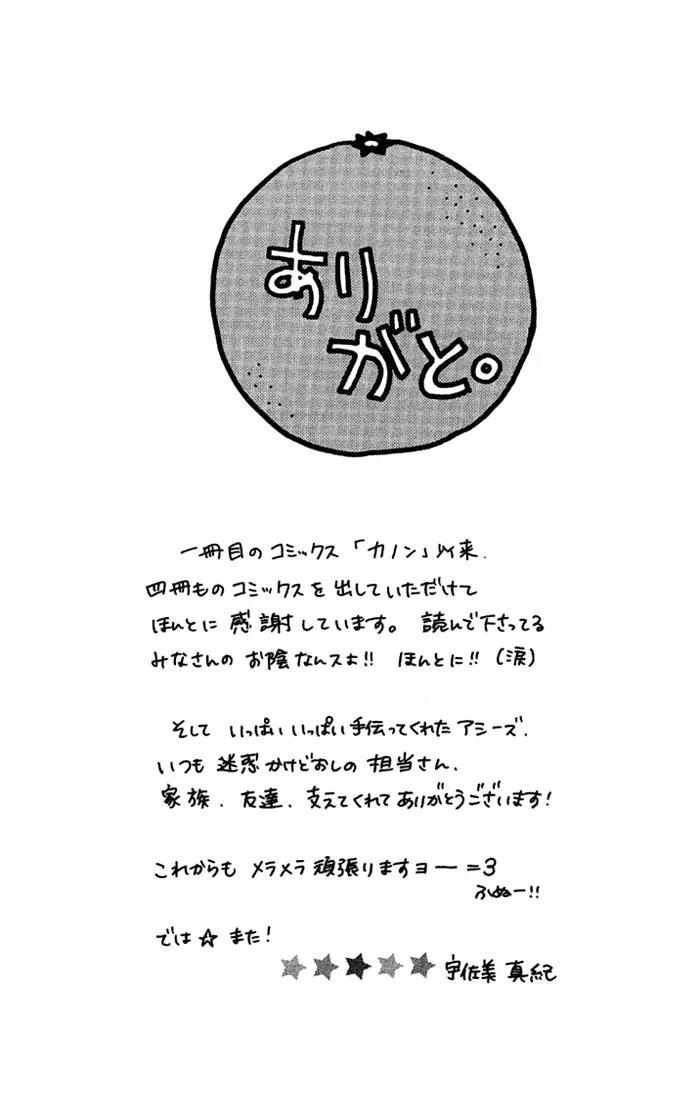 あり
がと。
一冊目のコミックス「カノン」以来、
四冊ものコミックスを出していただけて
ほんとに感謝しています。 読んで下さってる
みなさんのお陰なんスょ!! ほんとに!! (涙)
そして いっぱいいっぱい手伝ってくれたアシーズ、
いつも迷惑かけどおしの担当さん、
家族、友達、支えてくれてありがとうございます!
これからも メラメラ頑張りますヨー =3
ふぬー!!
では☆また!
★★★★★ 宇佐美 真紀